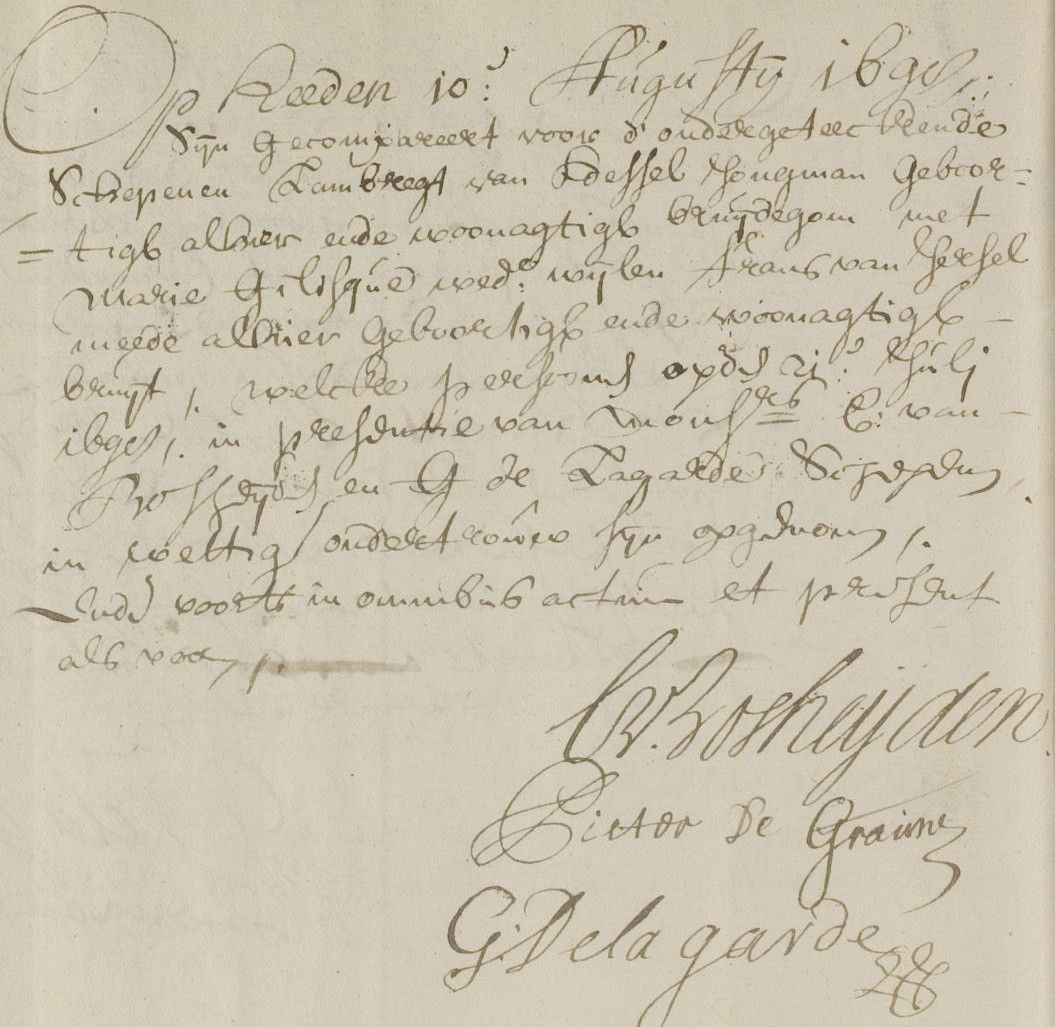 Op Heeden 10: Augusty 1698,:
Sijn Gecompareert voor d' ondergeteeckende
Schepenen Lambregt van Kessel Jongman Geboor=
=tigh alhier ende woonagtigh bruijdegom met
Marie Gilisque wed:e wijlen Frans van Hersel
meede alhier Geboortigh ende woonagtigh
bruijt, welcke persoonen opden 21: Julij
1698,: in presentie van Mons:rs C: van
Rosheijden en G de Lagarde Schepenen,
in wettig ondertrouw sijn opgenomen,:
Ende voorts in omnibus actum et present
als vooren,:
C V. Rosheijden
Pieter De
G: De la garde